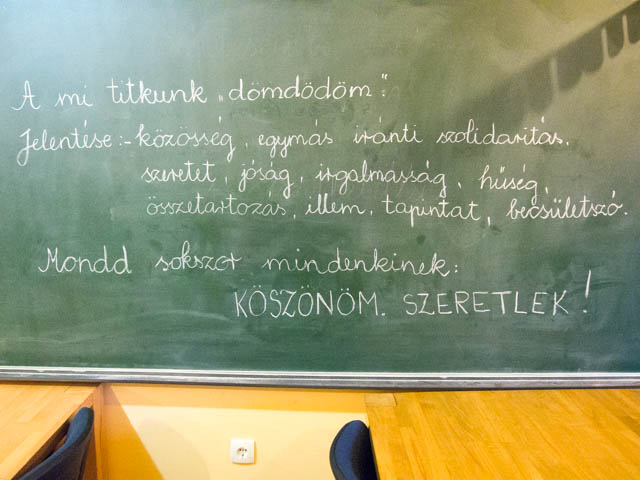 A mi titkunk „dömdödöm".
Jelentése:- közösség, egymás iránti szolidaritás,
szeretet, jóság, irgalmasság, hűség,
összetartozás, illem, tapintat, becsületszó.
Mondd sokszor mindenkinek:
KÖSZÖNÖM. SZERETLEK!